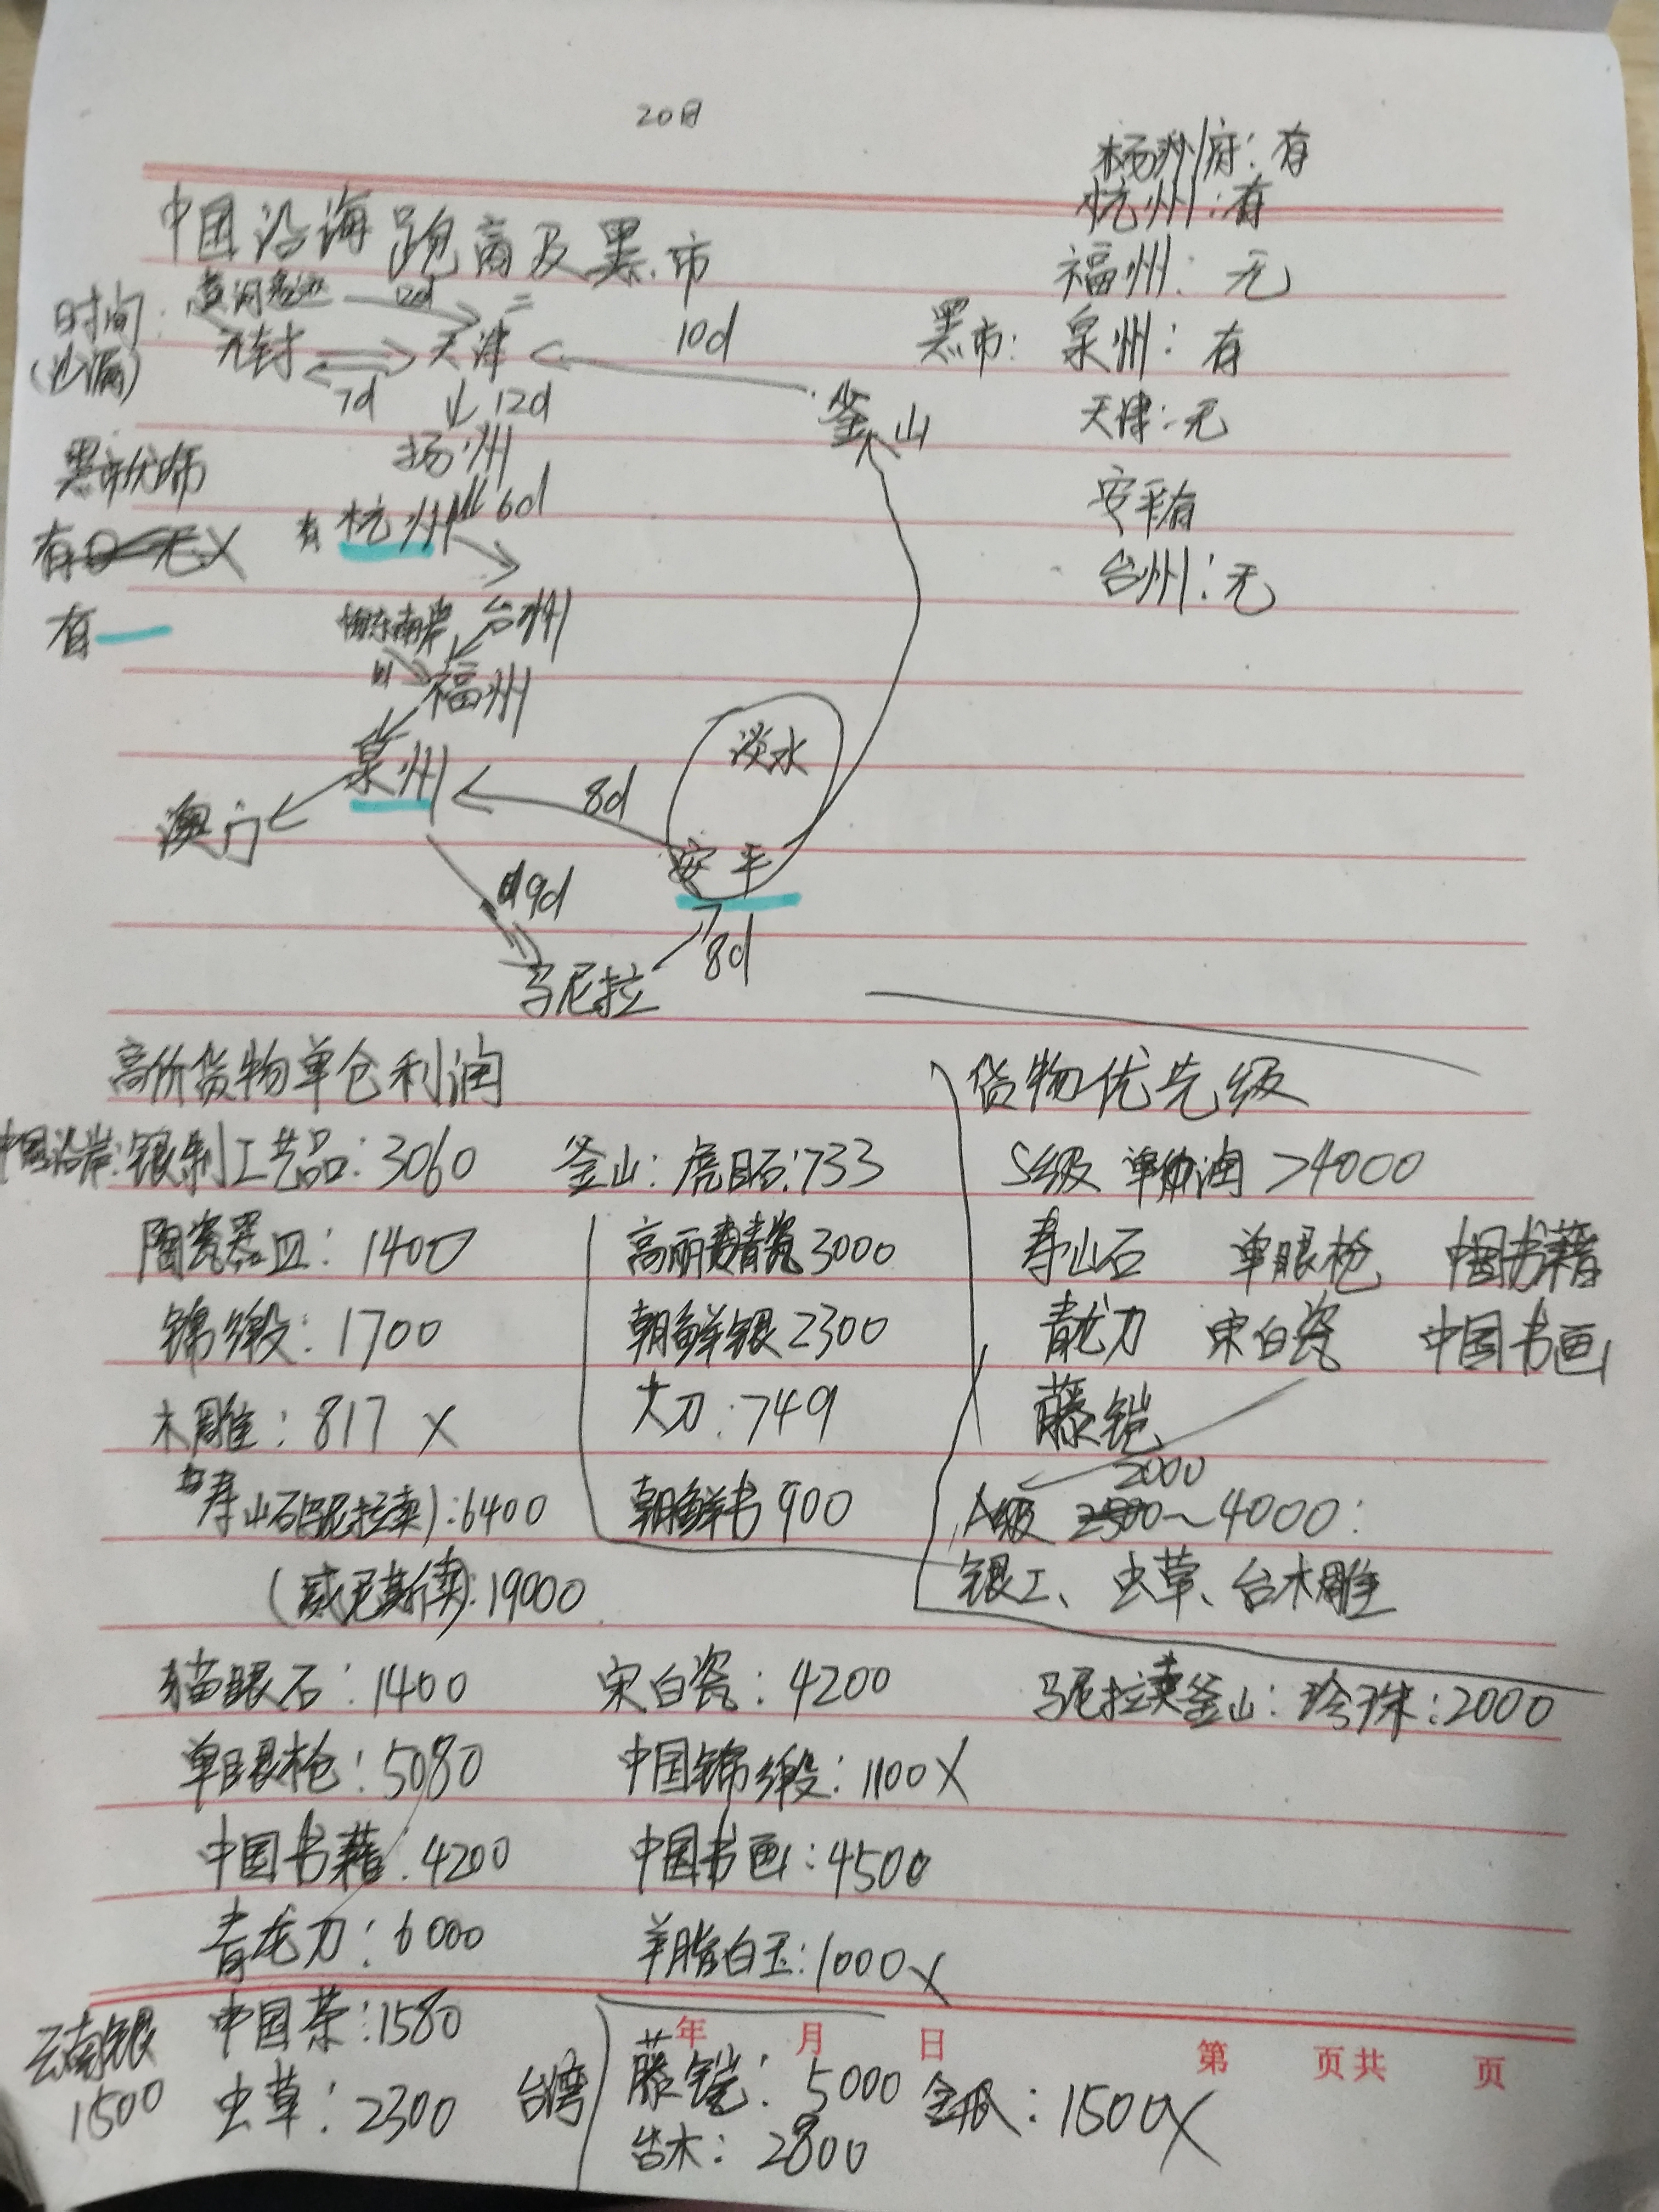 20日
杨州府：有
杭州：有
中国沿海跑商及黑市
福州：无
时间：
12d
开封
天津
10d
黑市：泉州：有
7d
12d
釜山
天津：无
扬州
黑市优师
安平有
有 无X
有 杭州 6d
台州：无
有
台州
福州
淡水
泉州
8d
澳门
安平
19d
8d
马尼拉
高价货物单仓利润
货物优先级
中国沿岸：银制工艺品：3060 釜山：虎目石：733
S级 单仓利润 >4000
陶瓷器皿：1400 高丽青瓷3000
寿山石 单眼枪 中国书籍
锦缎：1700 朝鲜银2300
青龙刀 宋白瓷 中国书画
木雕：817 X 大刀：749
藤铠
2000
寿山石(马尼拉卖)：6400 朝鲜书900
A级 2500～4000：
(威尼斯卖)：19000
银工、虫草、台木雕
猫眼石：1400 宋白瓷：4200 马尼拉卖釜山：珍珠：2000
单眼枪：5080 中国锦缎：1100X
中国书籍：4200 中国书画：4500
青龙刀：6000 羊脂白玉：1000X
云南银 中国茶：1580
年 月 日 第 页共 页
1500 虫草：2300 台湾 藤铠：5000 金瓜：1500X
台木：2800